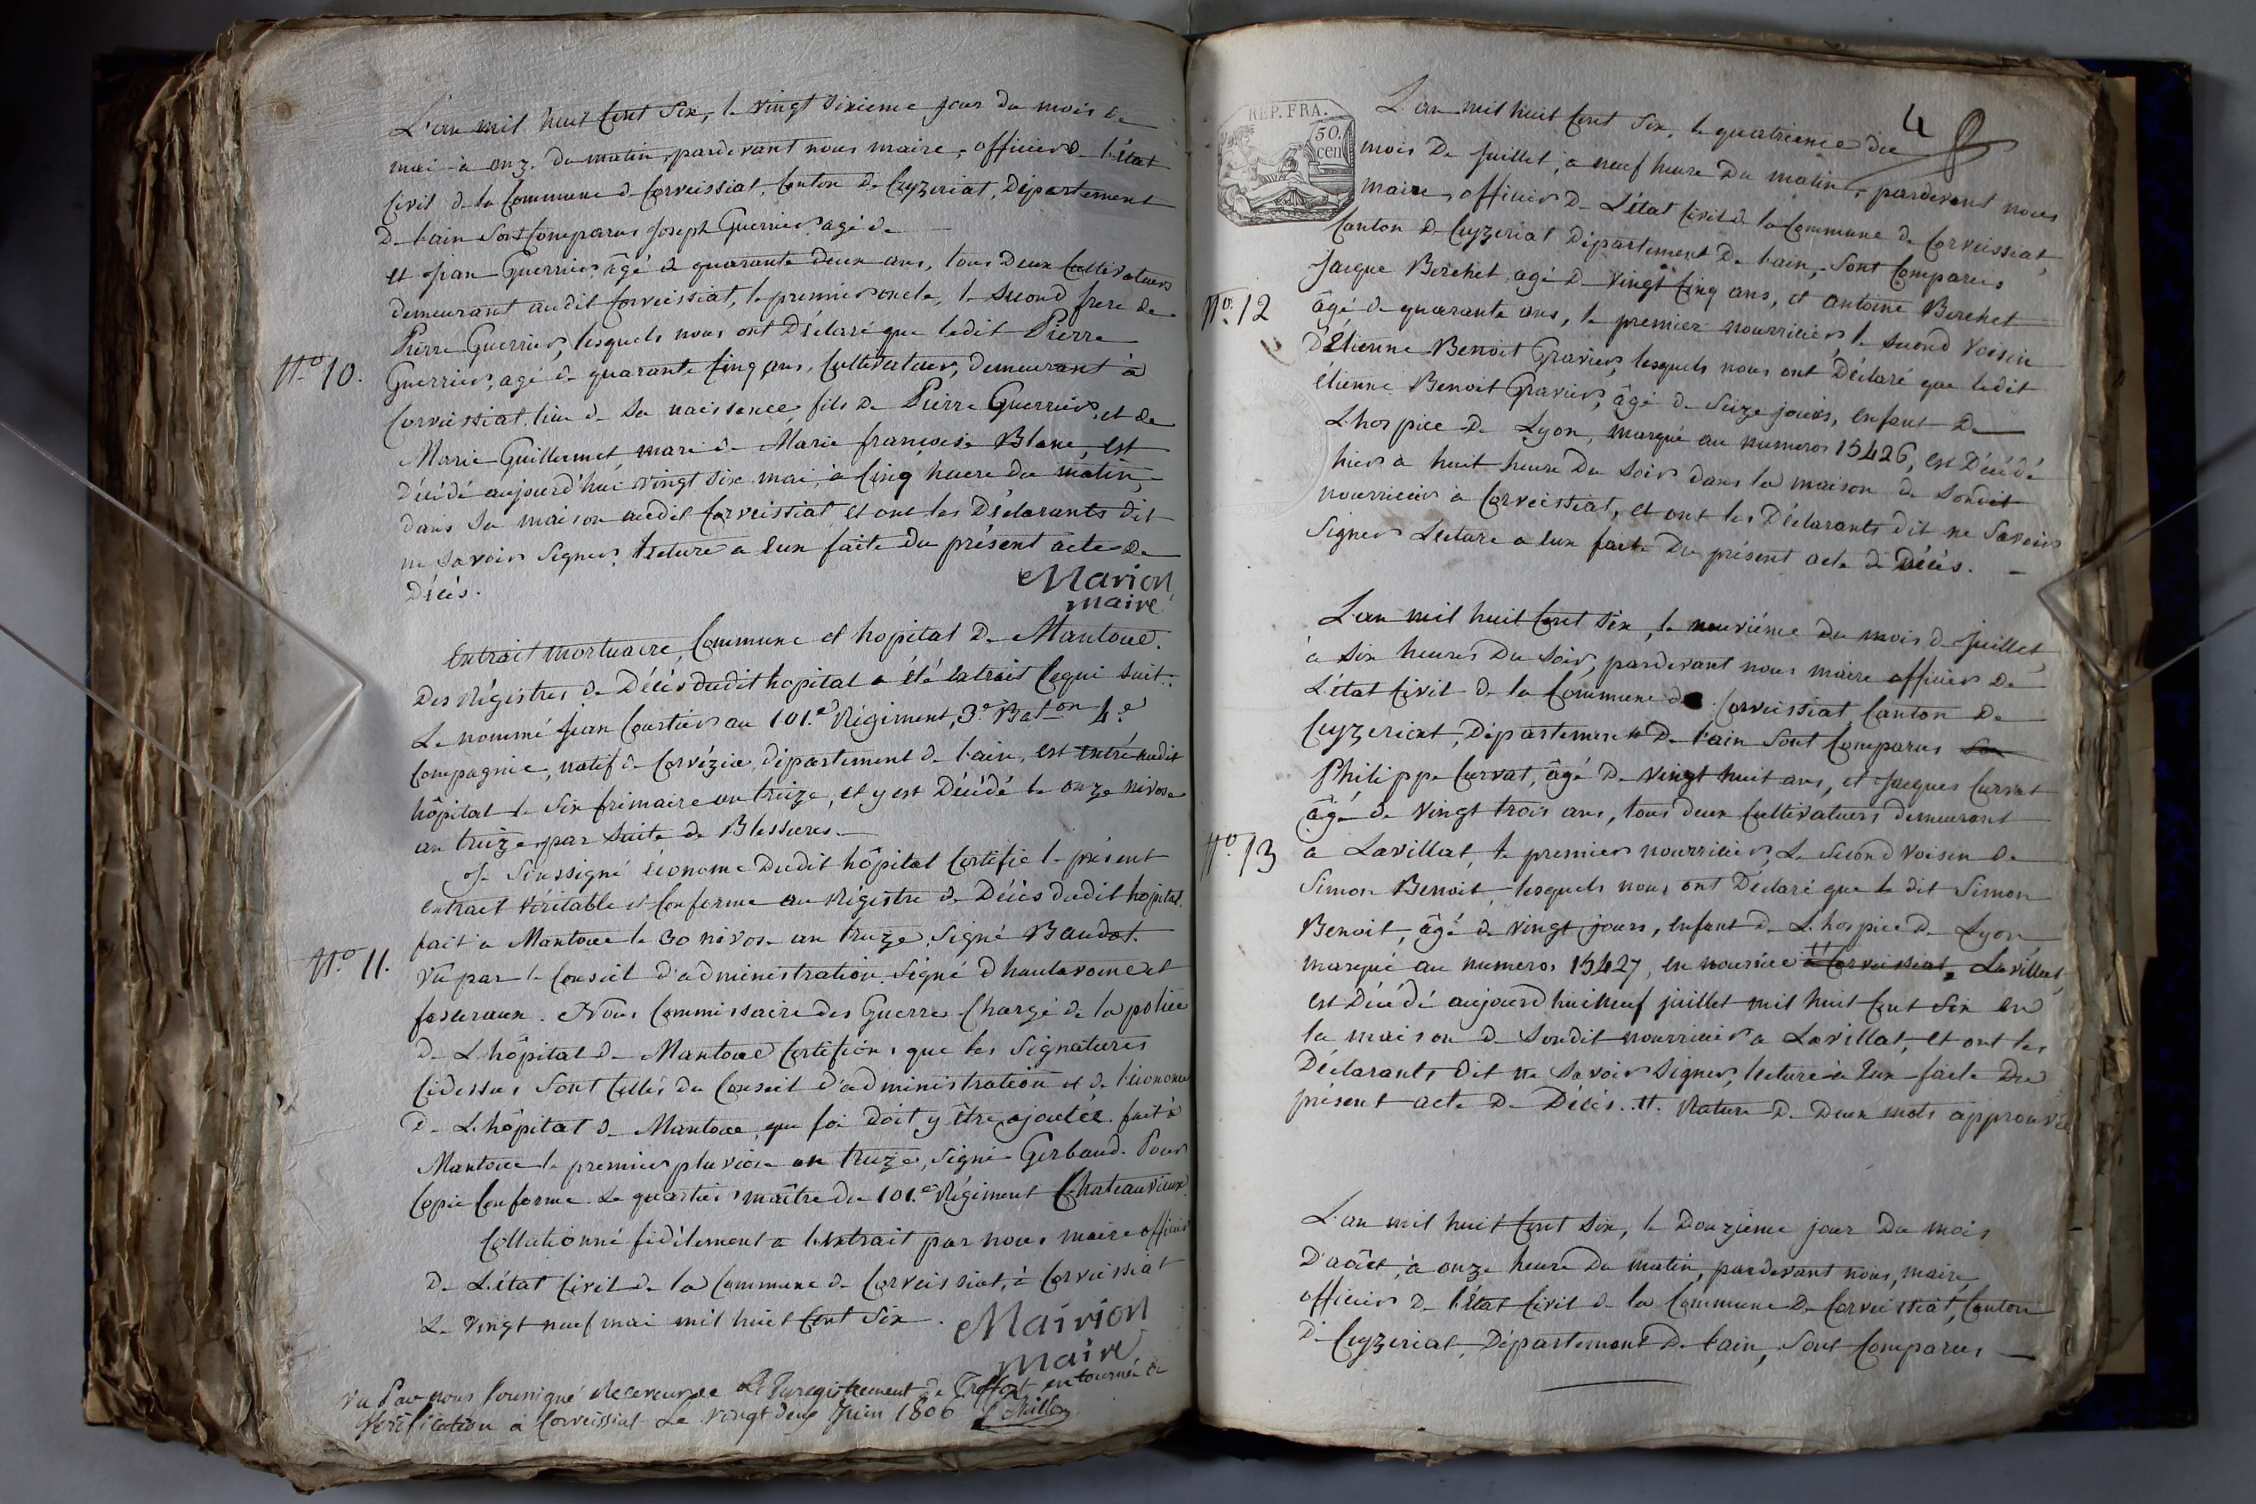 L'an mil huit Cent Six, le vingt Sixieme jour du mois de
mai à onze du matin, pardevant nous maire, officier de l'état
Civil de la Commune de Corveissiat, Canton de Ceyzeriat, Département
De l'ain Sont Comparus Joseph Guerrier, agé de
et Jean Guerrier, âgé de quarante deux ans, tous Deux Cultivateurs
demeurant audit Corveissiat, le premier oncle, le Second frere de
Pierre Guerrier, lesquels nous ont Déclaré que ledit Pierre
N.o 10.
Guerrier, agé de quarante Cinq ans, Cultivateur, Demeurant à
Corveissiat lieu de Sa naissance, fils De Pierre Guerrier, et de
Marie Guillermet, mari de Marie françoise Blanc, est
Décédé aujourd'hui vingt Six mai, à Cinq heure du matin,
dans Sa maison audit Corveissiat et ont les Déclarants dit
ne Savoir Signer, lecture a Eux faite du présent acte de
Décés.
Marion
maire
Extrait mortuaire, Commune et hopital De Mantoue.
Des Régistres de Décés dudit hopital a été Extrait Cequi Suit:
Le nommé Jean Courtier au 101.e Régiment, 3.e Bat.on 4.e
Compagnie, natif de Corvézia département de l'ain, est entré audit
hôpital le Six frimaire an treize, et y est Décédé le onze nivose
an treize par Suite de Blessures.
Je Soussigné Econome Dudit hôpital Certifie le présent
Extrait véritable et Conforme au Régistre de Décès dudit hopital.
fait à Mantoue le 30 nivose an treize, Signé Baudot.
N.o 11.
Vu par le Conseil d'administration Signé Dhautavoine et
. Nous Commissaire des Guerres Chargé de la police
De L'hôpital De Mantoue Certifions que les Signatures
Cidessus Sont Celles du Conseil d'administration et de l'économe
De L'hôpital de Mantoue, que foi Doit y être ajoutée. fait à
Mantoue le premier pluviose an treize, Signé Gerbaud. Pour
Copie Conforme. Le quartier maître du 101.e Régiment Chateauvieux.
Collationné fidélement a l'Extrait par nous maire officier
De L'état Civil de la Commune de Corveissiat, à Corveissiat
Le vingt neuf mai mil huit Cent Six.
Mairion
maire
Vu Par nous Soussigné Receveur de L'Enregistrement de Treffort en tournée de
Vérification à Corveissiat Le vingt deux Juin 1806
4
REP. FRA.
50.
cen
L'an mil huit Cent Six, le quatrieme du
mois De Juillet, à neuf heure Du matin, pardevant nous
maire, officier De L'état Civil de la Commune de Corveissiat,
Canton De Ceyzeriat Département De l'ain, Sont Comparus
Jacque Berchet, agé De vingt Cinq ans, et antoine Berchet
N.o 12
âgé de quarante ans, le premier nourricier, le Second voisin
D'Etienne Benoit Gravier, lesquels nous ont Déclaré que ledit
Etienne Benoit Gravier, âgé De Seize jours, Enfant De
L'hospice De Lyon, marqué au numeros 15426, est Décédé
hier à huit heure Du Soir dans la maison de Sondit
nourricier à Corveissiat, et ont les Déclarants dit ne Savoir
Signer Lecture a Eux faite Du présent acte de Décés.
L'an mil huit Cent Six, le neuvième du mois de Juillet,
à Six heures Du Soir, pardevant nous maire officier de
L'état Civil de la Commune de Corveissiat, Canton De
Ceyzeriat, Département De l'ain Sont Comparus
Philippe Curvat, âgé De vingt huit ans, et Jacques Curvat
âgé de vingt trois ans, tous deux Cultivateurs demeurant
N.o 13
a Lavillat, le premier nourricier, Le Second voisin De
Simon Benoit, lesquels nous ont Déclaré que le dit Simon
Benoit, âgé de vingt jours, Enfant De L'hospice De Lyon,
marqué au numeros 15427, en nourrice à Corveissiat, Lavillat,
est Décédé aujourd'hui neuf juillet mil huit Cent Six en
la maison de Sondit nourricier a Lavillat, et ont les
Déclarants dit ne Savoir Signer, lecture à Eux faite Du
présent acte De Décés. Rature De Deux mots approuvée
L'an mil huit Cent Six, le Douzieme jour Du mois
D'août, à onze heure Du matin, pardevant nous, maire,
officier De l'état Civil de la Commune De Corveissiat, Canton
De Ceyzeriat, Département De l'ain, Sont Comparus